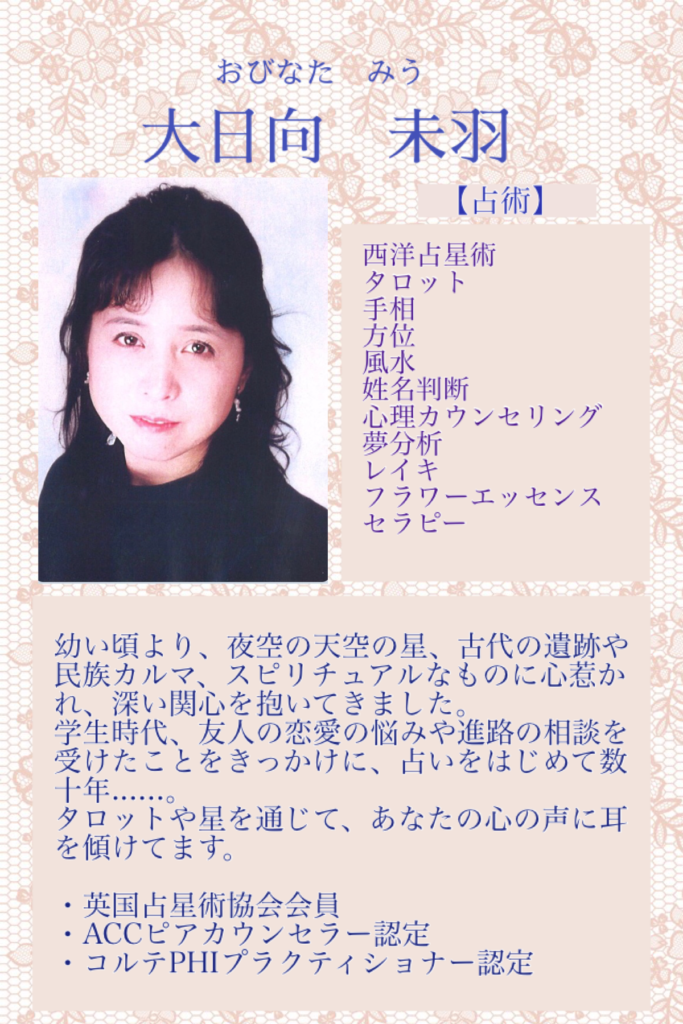 おびなた　みう
大日向　未羽
【占術】
西洋占星術
タロット
手相
方位
風水
姓名判断
心理カウンセリング
夢分析
レイキ
フラワーエッセンス
セラピー
幼い頃より、夜空の天空の星、古代の遺跡や
民族カルマ、スピリチュアルなものに心惹か
れ、深い関心を抱いてきました。
学生時代、友人の恋愛の悩みや進路の相談を
受けたことをきっかけに、占いをはじめて数
十年……。
タロットや星を通じて、あなたの心の声に耳
を傾けてます。
・英国占星術協会会員
・ACCピアカウンセラー認定
・コルテPHIプラクティショナー認定